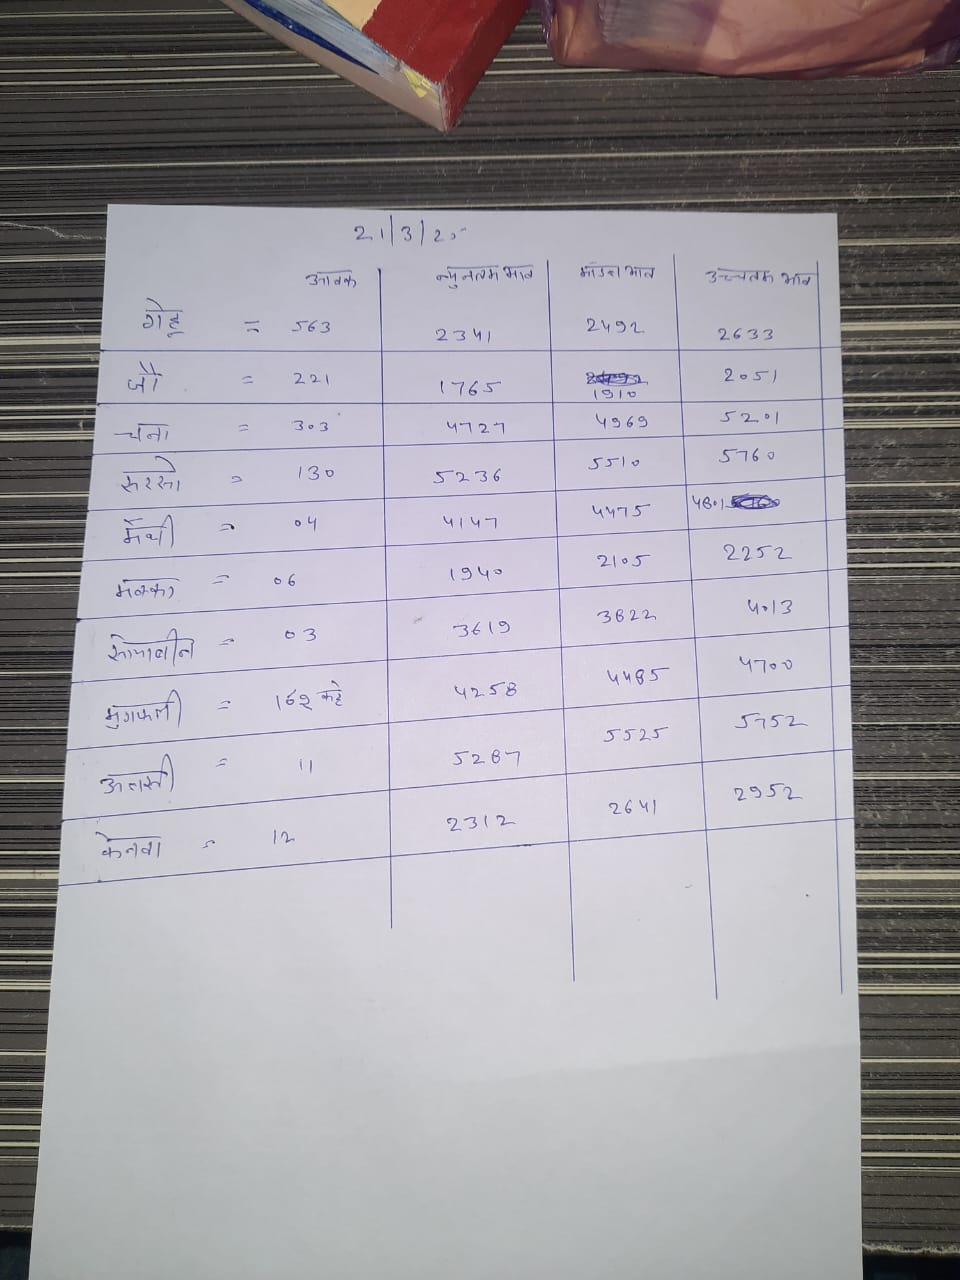 21/3/20
आवक न्युनतम भाव मॉडल भाव उच्चतम भाव
गेहू = 563 2341 2492 2633
जौ = 221 1765 1910 2051
चना = 303 4727 4969 5201
सरसो = 130 5236 5510 5760
मेथी = 04 4147 4475 4801
मक्का = 06 1940 2105 2252
सोयाबीन = 03 3619 3822 4013
मुगफली = 162 कट्टे 4258 4485 4700
अलसी = 11 5287 5525 5752
= 12 2312 2641 2952